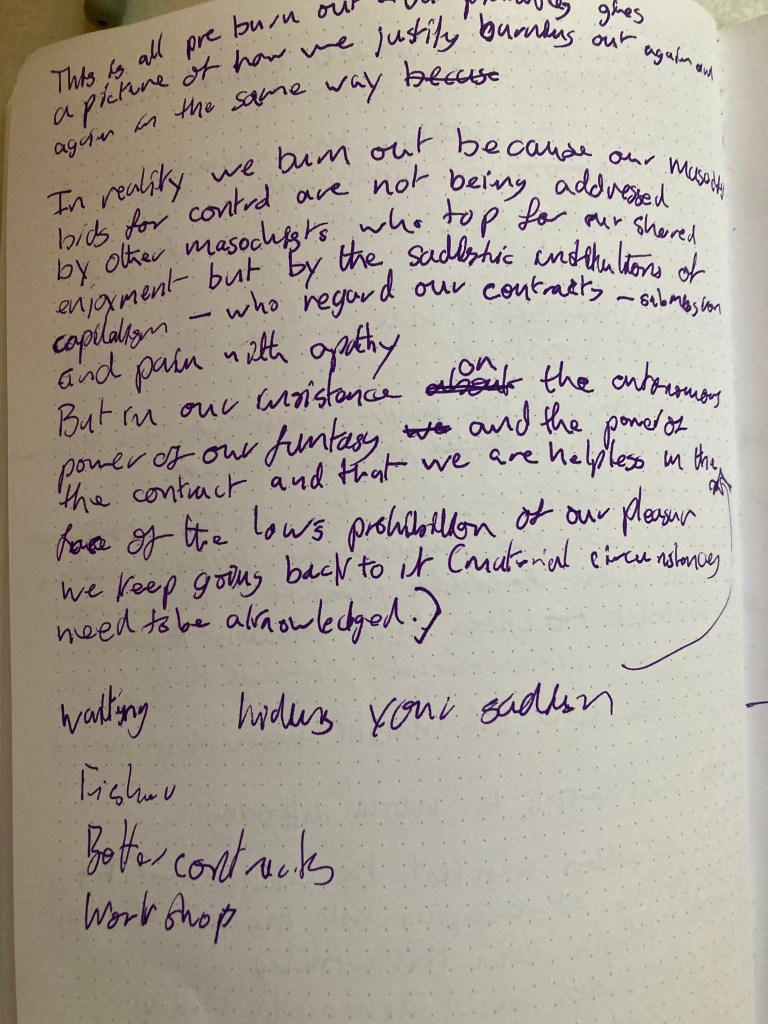 This is all pre burn out gives
a picture of how we justify burning out again and
again in the same way becuse
In reality we burn out because our
bids for control are not being addressed
by other masochists who top for our shared
enjoyment but by the sadistic institutions of
capitalism – who regard our contracts – submission
and pain with apathy
But in our insistance about on the autonomous
power of our fantasy we and the power of
the contract and that we are helpless in the
face of the law's prohibition of our pleasur
we keep going back to it (material circumstances
need to be aknowledged.)
waiting hiding your sadism
Fisher
Better contracts
Workshop